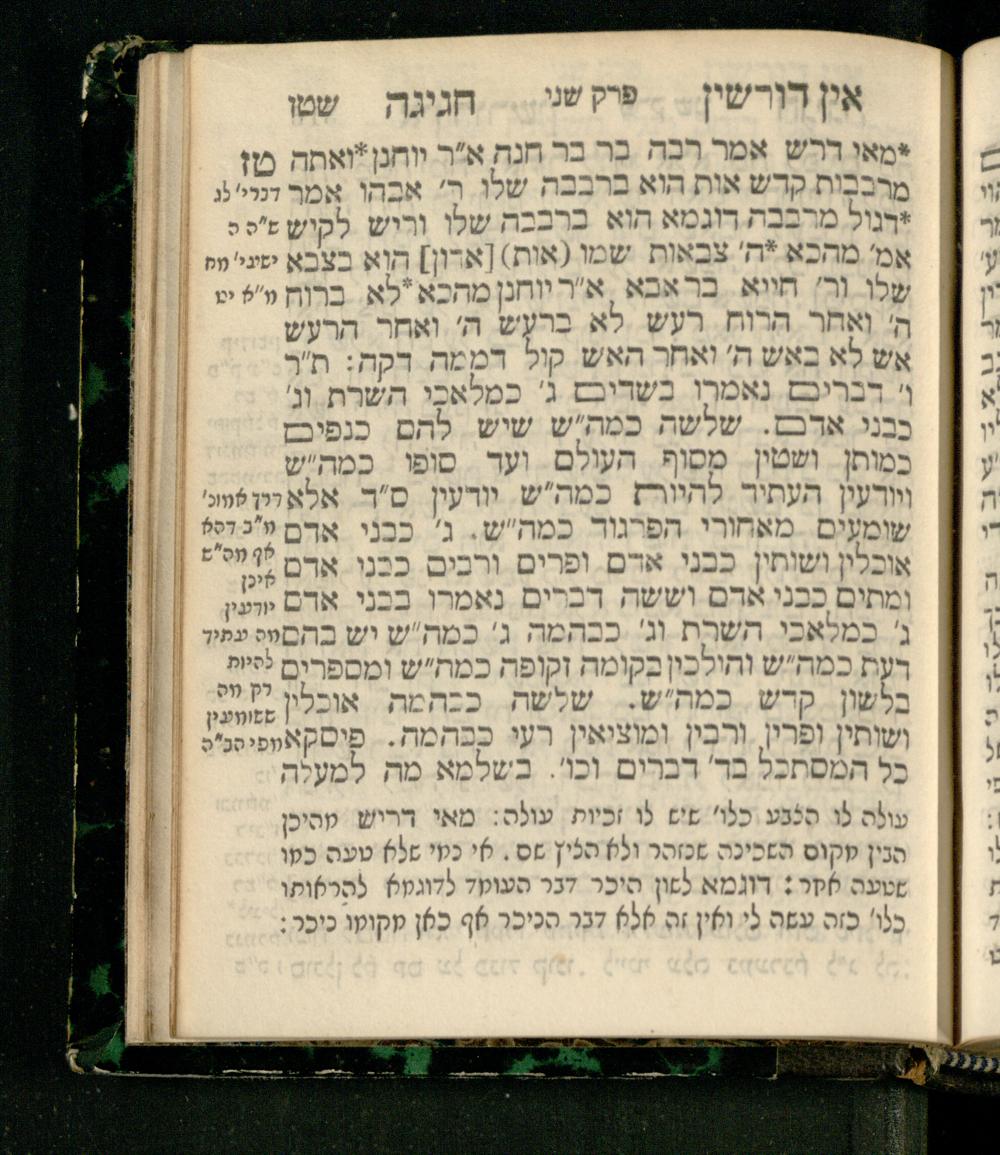 אין דורשין פרק שני חגיגה שטז
*מאי דרש אמר רבה בר בר חנה א״ר יוחנן *ואתה טז
מרבבות קדש אות הוא ברבבה שלו ר׳ אבהו אמר
*דגול מרבבה דוגמא הוא ברבבה שלו וריש לקיש
אמ׳ מהכא *ה׳ צבאות שמו (אות) [אדון] הוא בצבא
שלו ור׳ חייא בר אבא א״ר יוחנן מהכא *לא ברוח
ה׳ ואחר הרוח רעש לא ברעש ה׳ ואחר הרעש
אש לא באש ה׳ ואחר האש קול דממה דקה: ת״ר
ו׳ דברים נאמרו בשדים ג׳ כמלאכי השרת וג׳
כבני אדם. שלשה כמה״ש שיש להם כנפים
כמותן ושטין מסוף העולם ועד סופו כמה״ש
ויודעין העתיד להיות כמה״ש יודעין ס״ד אלא
שומעים מאחורי הפרגוד כמה״ש. ג׳ כבני אדם
אוכלין ושותין כבני אדם ופרים ורבים כבני אדם
ומתים כבני אדם וששה דברים נאמרו בבני אדם
ג׳ כמלאכי השרת וג׳ כבהמה ג׳ כמה״ש יש בהם
דעת כמה״ש והולכין בקומה זקופה כמה״ש ומספרים
בלשון קדש כמה״ש. שלשה כבהמה אוכלין
ושותין ופרין ורבין ומוציאין רעי כבהמה. פיסקא
כל המסתכל בד׳ דברים וכו׳. בשלמא מה למעלה
דברי׳ לג
ש״ה ה
ישעי׳ מח
מ״א יט
דרך אמונ׳
מ״ב דהא
אף מה״ש
אינן
יודעין
מה עתיד
להיות
רק מה
ששומעין
מפי הב״ה
עולה לו הלבע כלו׳ שיש לו זכיות עולה: מאי דריש מהיכן
הבין מקום השכינה שנזהר ולא הציץ שם. אי נמי שלא טעה כמו
שטעה אחר: דוגמא לשון היכר דבר העומד לדוגמא להראותו
כלו׳ כזה עשה לי ואין זה אלא דבר הניכר אף כאן מקומו ניכר: